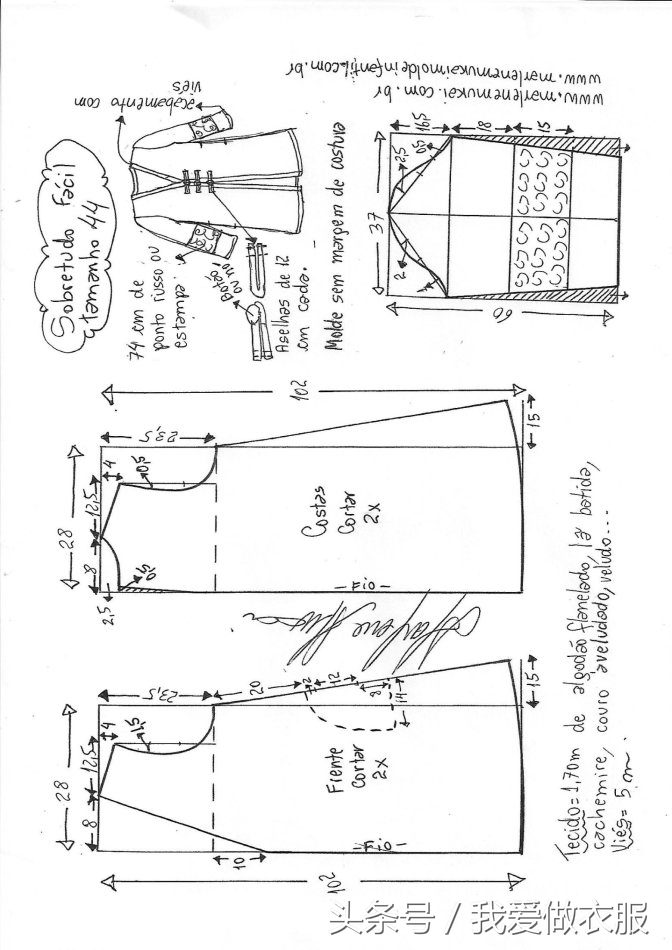 Sobretudo Fácil
tamanho 44
acabamento com
viés
74 cm de
ponto russo ou
estampa
Botão
ou nó
Aselhas de 12
cm cada.
Molde sem margem de costura
www.marlenemukai.com.br
www.marlenemukaimoldeinfantil.com.br
37
16,5
18
15
2,5
0,5
2
60
102
28
8
12,5
4
23,5
0,5
2,5
0,5
15
Costas
Cortar
2x
Fio
102
28
8
12,5
4
23,5
1,5
20
2
12
8
14
15
10
Frente
Cortar
2x
Fio
Tecido= 1,70m de algodão flanelado, lã batida,
cachemire, couro aveludado, veludo...
Viés= 5 m.
头条号 / 我爱做衣服